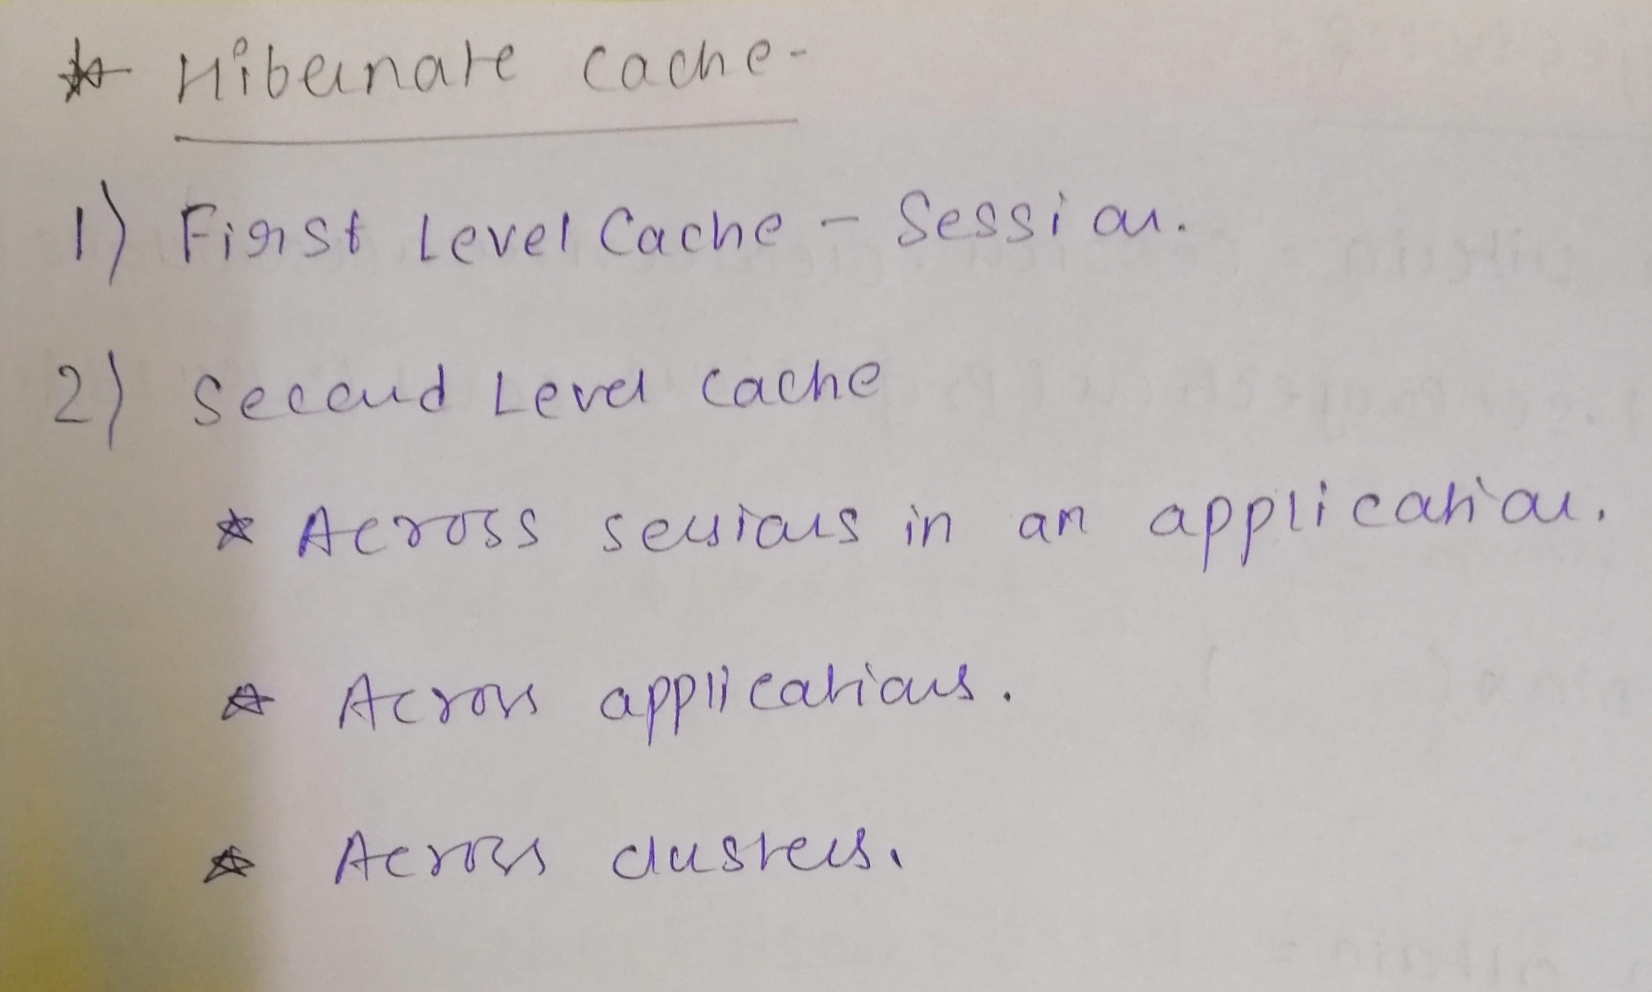 * Hibernate Cache-
1) First Level Cache - Session.
2) Second Level Cache
* Across sessions in an application.
* Across applications.
* Across clusters.